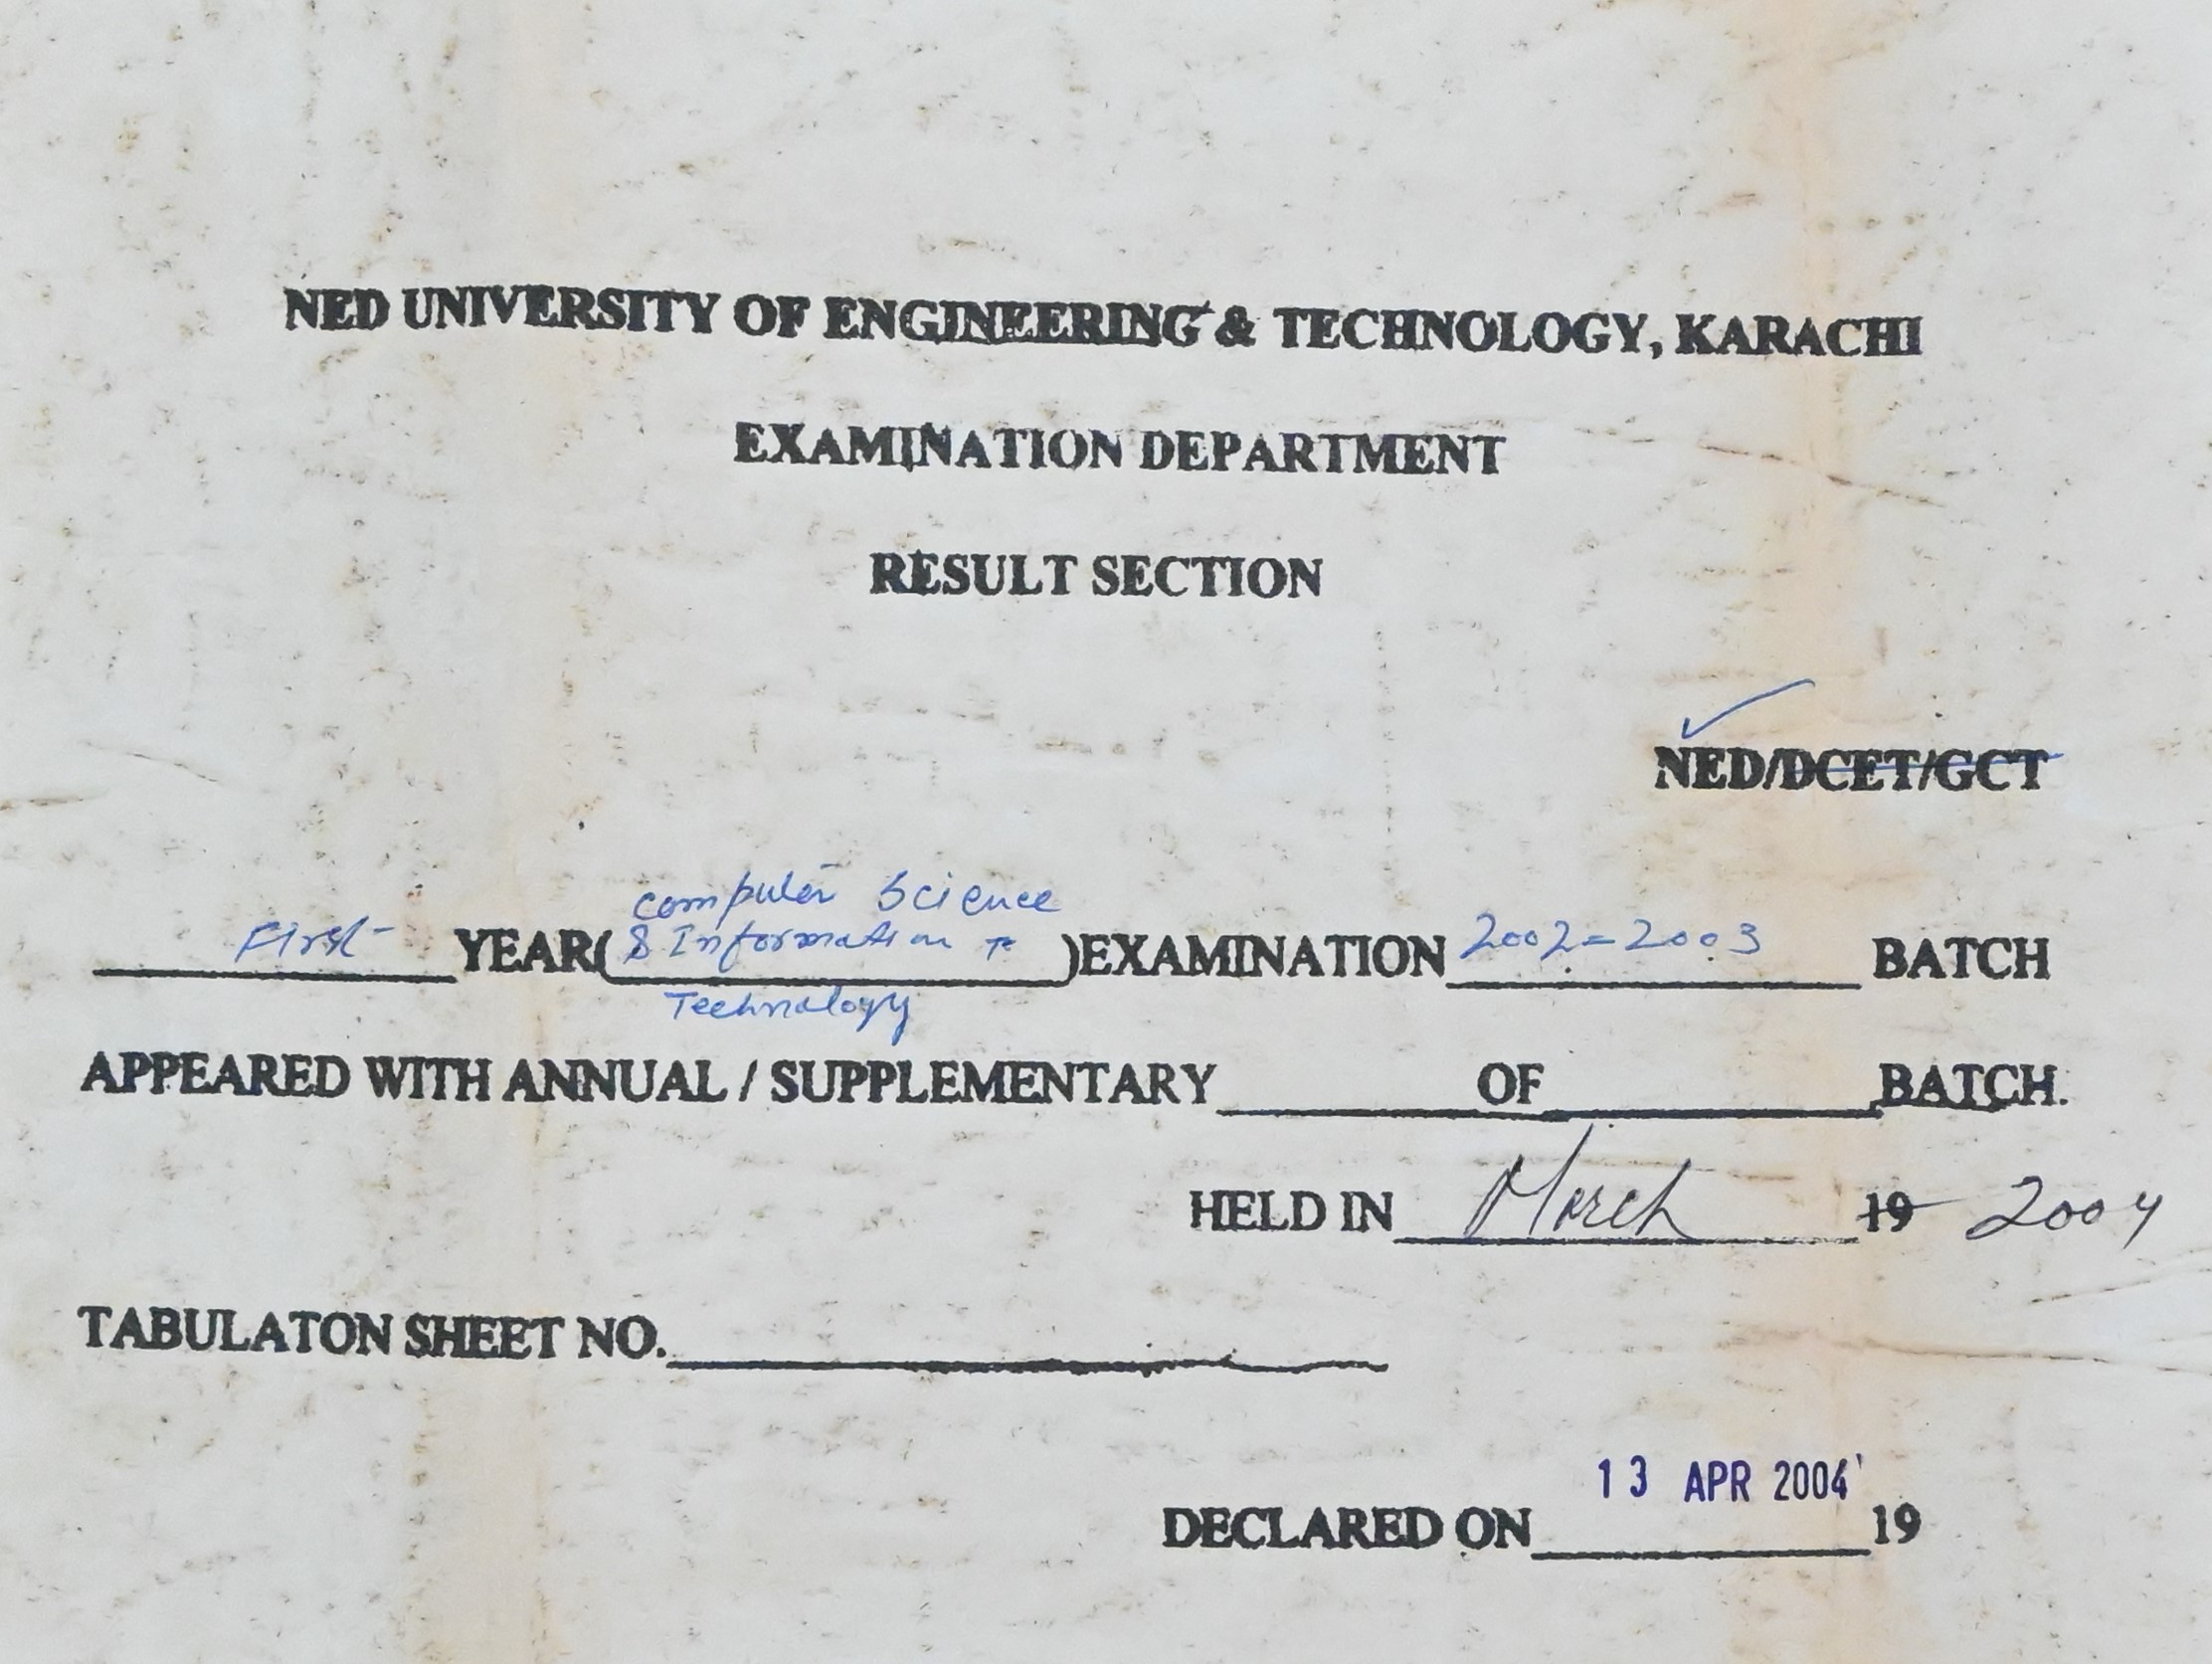 NED UNIVERSITY OF ENGINEERING & TECHNOLOGY, KARACHI
EXAMINATION DEPARTMENT
RESULT SECTION
NED/DCET/GCT
Computer Science
First YEAR( & Information T )EXAMINATION 2002-2003 BATCH
Technology
APPEARED WITH ANNUAL / SUPPLEMENTARY OF BATCH.
HELD IN March 19 2004
TABULATON SHEET NO.
13 APR 2004
DECLARED ON 19